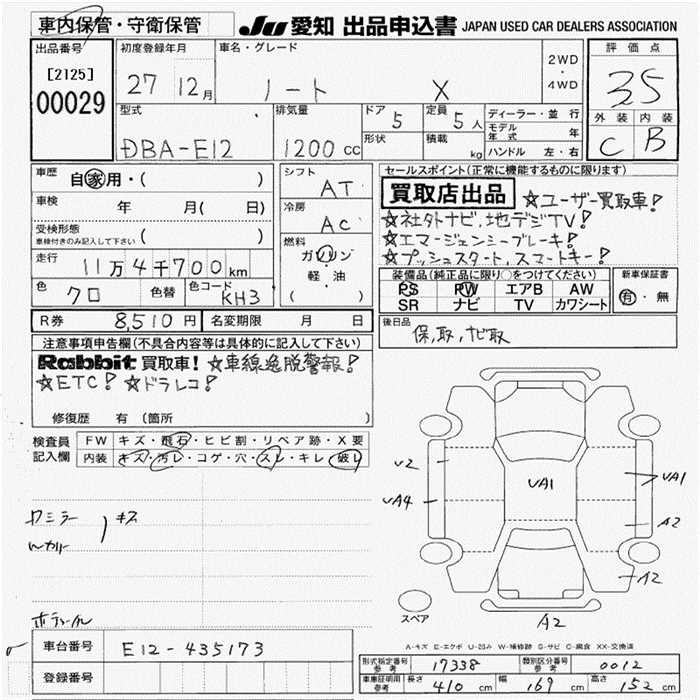 車内保管・守衛保管
JU 愛知 出品申込書 JAPAN USED CAR DEALERS ASSOCIATION
出品番号
[2125]
00029
初度登録年月
27 12月
車名・グレード
ノート X
2WD
・
4WD
評価点
3.5
外装 内装
C B
型式
DBA-E12
排気量
1200 CC
ドア
5
形状
定員
5人
積載
kg
ディーラー・並行
モデル年式 年
ハンドル 左・右
車歴
自家用・( )
車検
年 月( 日)
受検形態
車検付きのみ記入して下さい ( )
走行
11万4千700km
色
クロ
色替
色コード
KH3
シフト
AT
冷房
AC
燃料
ガソリン
軽・油
( )
セールスポイント(正常に機能するものに限ります)
買取店出品 ☆ユーザー買取車!
☆社外ナビ、地デジTV!
☆エマージェンシーブレーキ!
☆プッシュスタート,スマートキー!
装備品(純正品に限り○をつけてください)
PS PW エアB AW
SR ナビ TV カワシート
新車保証書
有・無
R券 8,510円
名変期限 月 日
後日品
保,取,ナビ取
注意事項申告欄(不具合内容等は具体的に記入して下さい)
Rabbit 買取車! ☆車線逸脱警報!
☆ETC! ☆ドラレコ!
修復歴 有(箇所 )
検査員記入欄
FW キズ・飛石・ヒビ割・リペア跡・X要
内装 キズ・汚レ・コゲ・穴・スレ・キレ・破レ
キズ
U2
UA4
UA1
UA1
A2
A2
A2
スペア
A-キズ E-エクボ U-凹み W-補修跡 S-サビ C-腐食 XX-交換済
車台番号 E12-435173
登録番号
形式指定番号 参考 17338
類別区分番号 参考 0012
車庫証明用 参考 長さ 410cm 幅 169cm 高さ 152cm